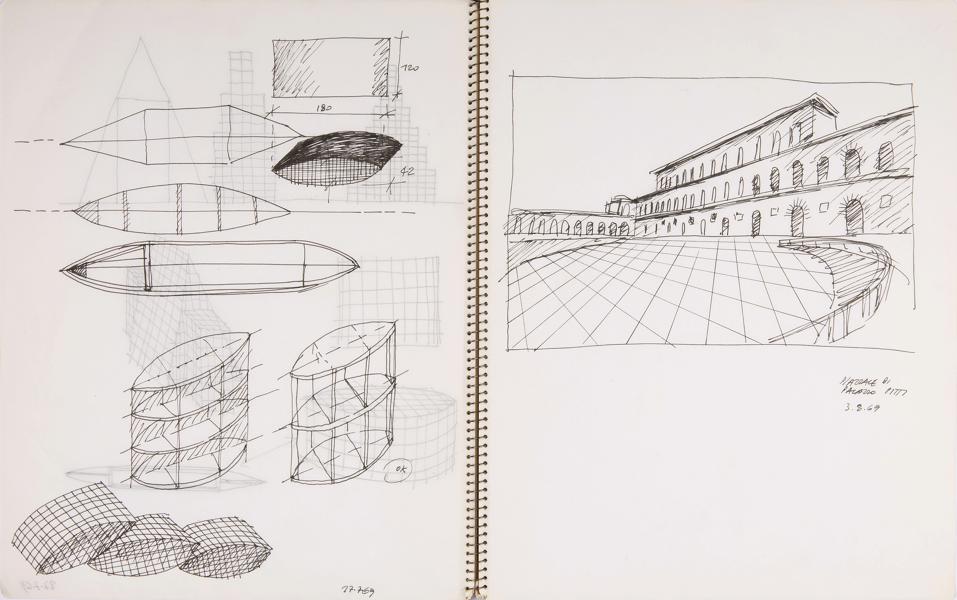 120
180
42
OK
27.7.69
PIAZZALE DI
PALAZZO PITTI
3.8.69